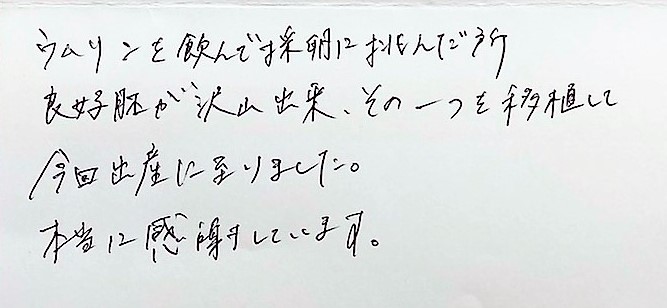 ウムリンを飲んで採卵に挑んだ所
良好胚が沢山出来、その一つを移植して
今回出産に至りました。
本当に感謝しています。